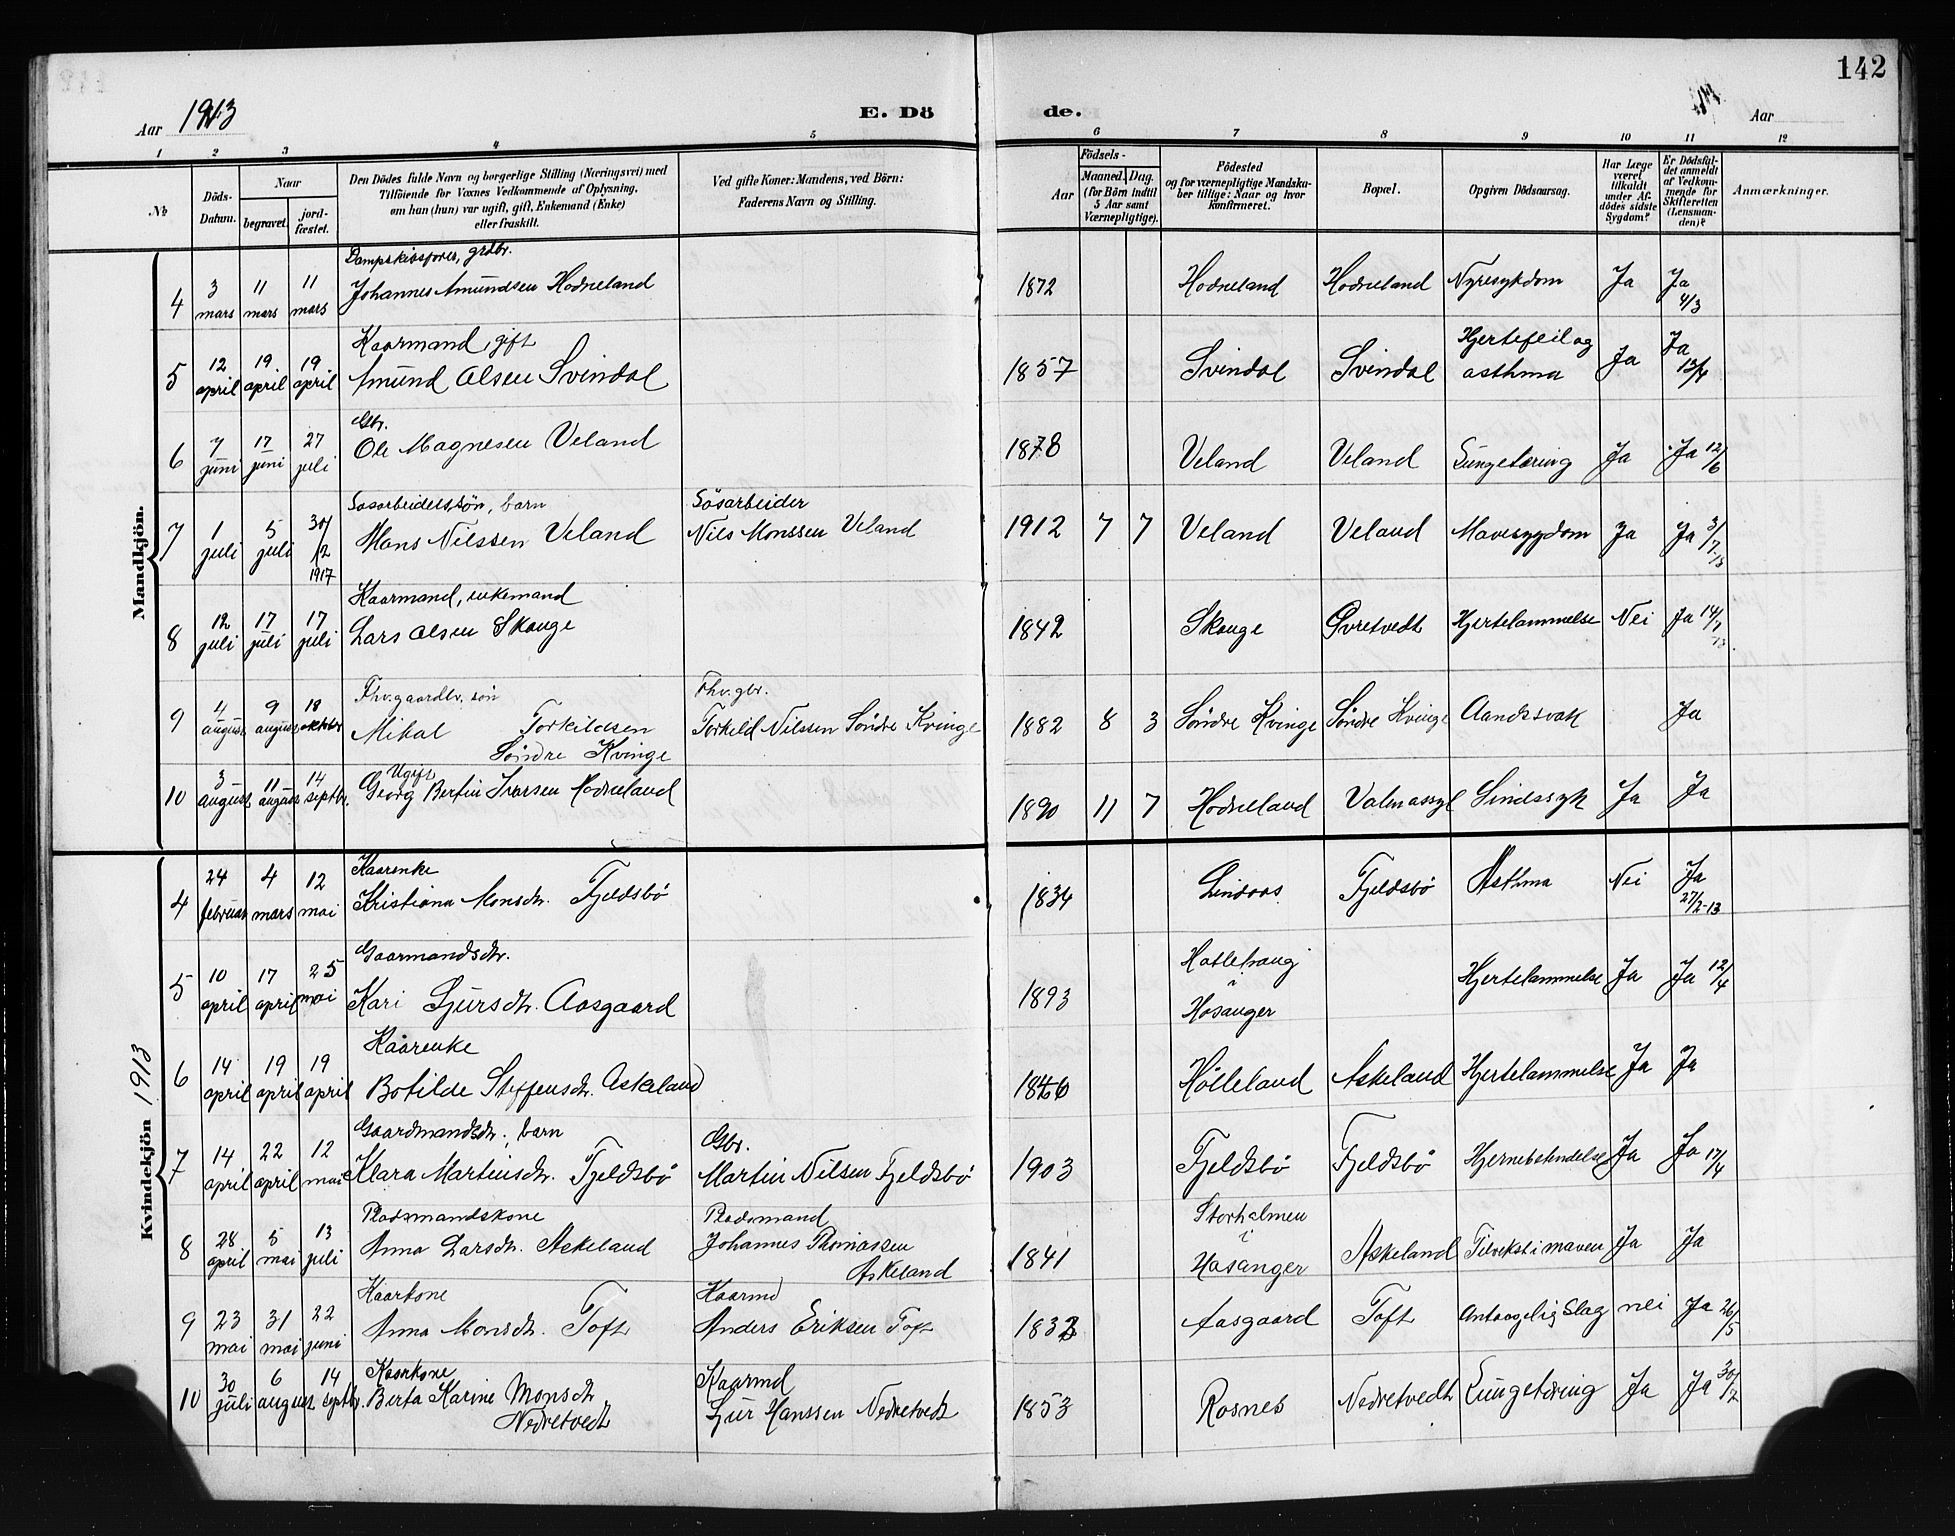 142
Aar 1913
E. Dö
de.
Aar
1 2 3 4 5 6 7 8 9 10 11 12
№
Döds-Datum.
Naar
begravet.
jord-fæstet.
Den Dödes fulde Navn og borgerlige Stilling (Næringsvei) med
Tilföiende for Voxnes Vedkommende af Oplysning,
om han (hun) var ugift, gift, Enkemand (Enke)
eller fraskilt.
Ved gifte Koner: Mandens, ved Börn:
Faderens Navn og Stilling.
Födsels-
Aar
Maaned. Dag.
(for Börn indtil
5 Aar samt
Værnepligtige).
Födested
og for værnepligtige Mandska-
ber tillige: Naar og hvor
konfirmeret.
Bopæl.
Opgiven Dödsaarsag.
Har Læge
været
tilkaldt
under Af-
dödes sidste
Sygdom?
Er Dödsfal-
det anmeldt
af Vedkom-
mende for
Skifteretten
(Lensman-
den)?
Anmærkninger.
Mandkjön.
Dampskibsfører, grdbr.
4 3 mars 11 mars 11 mars Johannes Amundsen Hodneland 1872 Hodneland Hodneland Nyresykdom Ja Ja 4/3
Kaarmand, gift
5 12 april 19 april 19 april Amund Olsen Svindal 1857 Svindal Svindal Hjertefeil og asthma Ja Ja 12/4
Gbr.
6 7 juni 17 juni 27 juli Ole Magnesen Veland 1878 Veland Veland Lungetæring Ja Ja 12/6
Søsarbeiderssøn, barn Søsarbeider
7 1 juli 5 juli 30/12 1917 Mons Nilssen Veland Nils Monssen Veland 1912 7 7 Veland Veland Mavesygdom Ja Ja 3/7-13
Kaarmand, enkemand
8 12 juli 17 juli 17 juli Lars Olsen Skauge 1842 Skauge Øvretvedt Hjertelammelse Nei Ja 14/7-13
Fhv. gaardbr. søn Fhv. gbr.
9 4 august 9 august 18 oktbr Mikal Torkildsen Søndre Kvinge Torkild Nilssen Søndre Kvinge 1882 8 3 Søndre Kvinge Søndre Kvinge Aandssvak Ja
Ugift
10 3 august 11 august 14 septbr. Georg Bertin Ivarsen Hodneland 1890 11 7 Hodneland Valen assyl Sindssyk Ja Ja
Kvindekjön 1913
Kaarenke
4 24 februar 4 mars 12 mai Kristiana Monsdtr. Fjeldsbø 1834 Lindaas Fjeldsbø Asthma Nei Ja 27/2-13
Gaarmandsdtr.
5 10 april 17 april 25 mai Kari Sjursdtr. Aasgaard 1893 Hatlehaug i Hosanger Hjertelammelse Ja Ja 12/4
Kaarenke
6 14 april 19 april 19 april Botilde Steffensdtr. Askeland 1846 Holleland Askeland Hjertelammelse Ja Ja
Gaardmandsdtr., barn Gbr.
7 14 april 22 april 12 mai Klara Martinsdtr. Fjeldsbø Martin Nilsen Fjeldsbø 1903 Fjeldsbø Fjeldsbø Hjernebetændelse Ja Ja 17/4
Pladsmandskone Pladsmand
8 28 april 5 mai 13 juli Anna Larsdtr. Askeland Johannes Thomassen Askeland 1841 Storholmen i Hosanger Askeland Tilvekst i maven Ja Ja
Kaarkone Kaarmd
9 23 mai 31 mai 22 juni Anna Monsdtr. Toft Anders Eriksen Toft 1832 Aasgaard Toft Antagelig Slag nei Ja 26/5
Kaarkone Kaarmd
10 30 juli 6 august 14 septbr. Berta Karine Monsdtr Nedretvedt Sjur Hanssen Nedretvedt 1853 Rosnes Nedretvedt Lungetæring Ja Ja 30/7